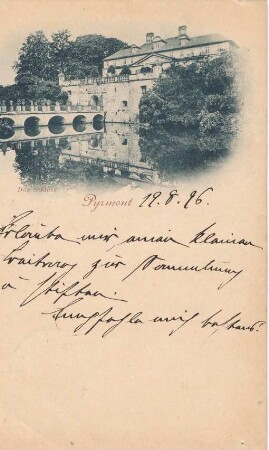 Das Schloss
Pyrmont 19.8.96.
Erlaube mir einen kleinen
Beitrag zur Sammlung
zu stiften.
Empfehle mich bestens!